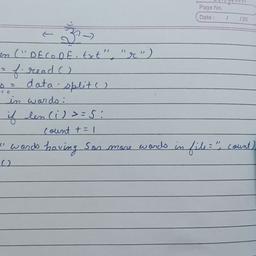 Page No.
Date: / /20
en ("DECODE.txt", "r")
= f. read ()
s = data. split ()
in words:
if len (i) >= 5:
count += 1
" words having 5 or more words in file=", count)
()